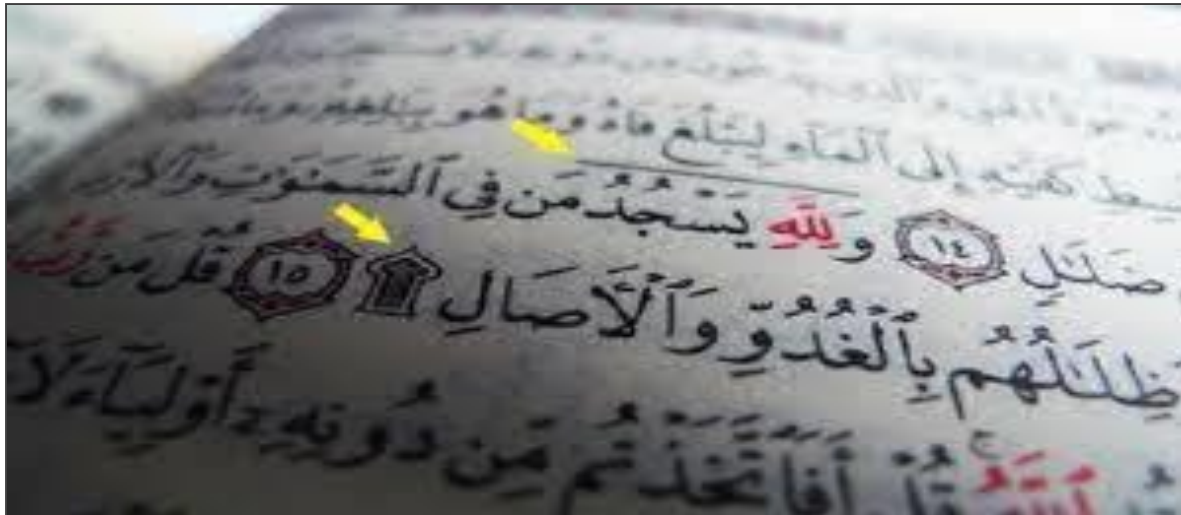 كَفَّيْهِ إِلَى ٱلْمَآءِ لِيَبْلُغَ فَاهُ وَمَا هُوَ بِبَٰلِغِهِۦ وَمَا
ضَلَٰلٍ ١٤ وَلِلَّهِ يَسْجُدُ مَن فِي ٱلسَّمَٰوَٰتِ وَٱلْأَرْ
وَظِلَٰلُهُم بِٱلْغُدُوِّ وَٱلْأٓصَالِ ۩ ١٥ قُلْ مَن رَّبُّ
ٱللَّهُ ۚ قُلْ أَفَٱتَّخَذْتُم مِّن دُونِهِۦٓ أَوْلِيَآءَ لَا